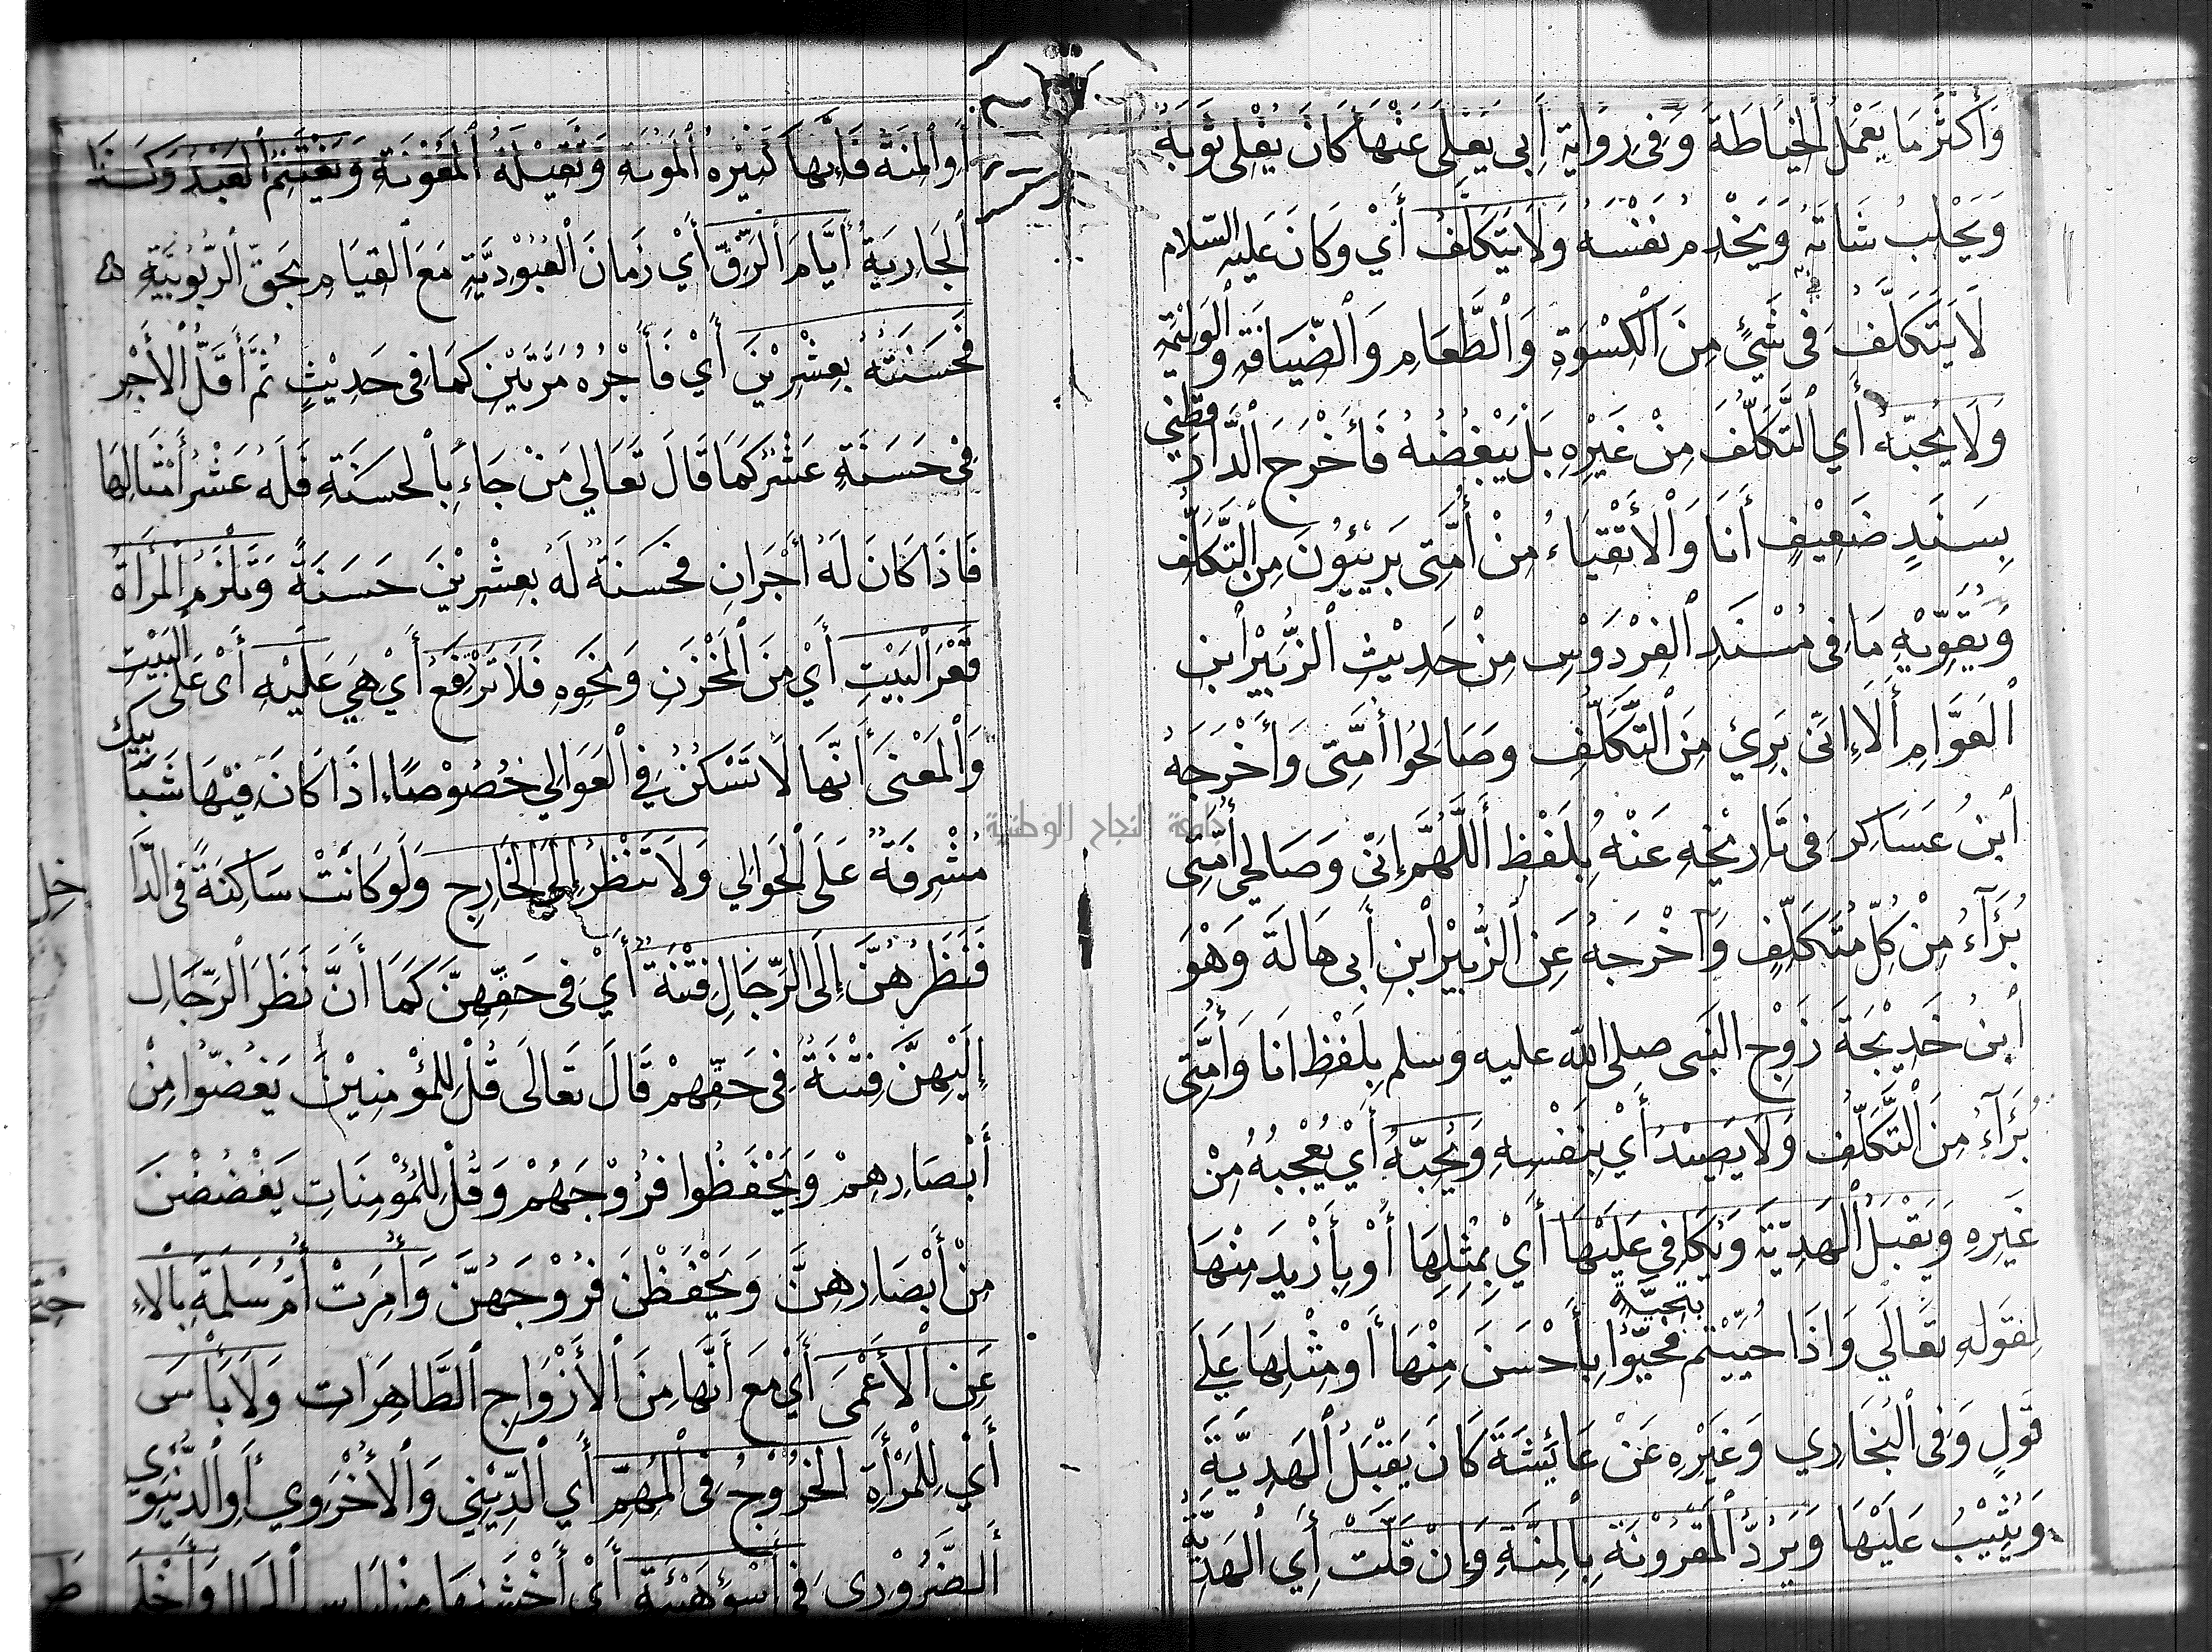 وَأَكْثَرُ مَا يَعْمَلُ الخِيَاطَةَ وَفِي رِوَايَةِ أَبِي يَعْلَى عَنْهَا كَانَ يَفْلِي ثَوْبَهُ
وَيَحْلِبُ شَاتَهُ وَيَخْدِمُ نَفْسَهُ وَلَا يَتَكَلَّفُ أَيْ وَكَانَ عَلَيْهِ السَّلام
لَا يَتَكَلَّفُ فِي شَيْءٍ مِنَ الْكِسْوَةِ وَالطَّعَامِ وَالضِّيَافَةِ وَالْوَلِيْمَةِ
وَلَا يُحِبُّهُ أَي التَّكَلُّفَ مِنْ غَيْرِهِ بَلْ يَبْغَضُهُ فَأَخْرَجَ الدَّارَ قُطْنِي
بِسَنَدٍ ضَعِيْفٍ أَنَا وَالْأَتْقِيَاءُ مِنْ أُمَّتِي بَرِيْئُوْنَ مِنَ التَّكَلُّفِ
وَيُقَوِّيْهِ مَا فِي مُسْنَدِ الْفِرْدَوْسِ مِنْ حَدِيْثِ الزُّبَيْرِ ابْنِ
الْعَوَّامِ أَلَا إِنِّي بَرِيءٌ مِنَ التَّكَلُّفِ وَصَالِحُوا أُمَّتِي وَأَخْرَجَهُ
ابْنُ عَسَاكِرَ فِي تَارِيْخِهِ عَنْهُ بِلَفْظِ أَللَّهُمَّ إِنِّي وَصَالِحِي أُمَّتِي
بُرَآءُ مِنْ كُلِّ مُتَكَلِّفٍ وَأَخْرَجَهُ عَنِ الزُّبَيْرِ ابْنِ أَبِي هَالَةَ وَهُوَ
ابْنُ خَدِيْجَةَ زَوْجِ النَّبِي صلى الله عليه وسلم بِلَفْظِ انَا وَأُمَّتِي
بُرَآءُ مِنَ التَّكَلُّفِ وَلَا يَصِيْدُ أَيْ بِنَفْسِهِ وَيُحِبُّهُ أَيْ يُعْجِبُهُ مِنْ
غَيْرِهِ وَيَقْبَلُ الْهَدِيَّةَ وَيُكَافِي عَلَيْهَا أَيْ بِمِثْلِهَا أَوْ بِأَزْيَدَ مِنْهَا
لِقَوْلِهِ تَعَالَى وَاِذَا حُيِّيْتُمْ بِتَحِيَّةٍ فَحَيُّوا بِأَحْسَنَ مِنْهَا أَوْ مِثْلِهَا عَلَى
قَوْلٍ وَفِي الْبُخَارِي وَغَيْرِهِ عَنْ عَائِشَةَ كَانَ يَقْبَلُ الْهَدِيَّةَ
وَيُثِيْبُ عَلَيْهَا وَيَرُدُّ الْمَقْرُوْنَةَ بِالْمِنَّةِ وَاِنْ قَلَّتْ أَيِ الْهَدِيَّةُ
أَوِ الْمِنَّةُ فَإِنَّهَا كَثِيْرَةُ الْمَؤُنَةِ وَثَقِيْلَةُ الْمَعُوْنَةِ وَيَغْتَنِمُ الْعَبْدُ وَكَذَا
الْجَارِيَةُ أَيَّامَ الرِّقِّ أَيْ زَمَانَ الْعُبُوْدِيَّةِ مَعَ الْقِيَامِ بِحَقِّ الرُّبُوْبِيَّةِ
فَحَسَنَتُهُ بِعِشْرِيْنَ أَيْ فَأَجْرُهُ مَرَّتَيْنِ كَمَا فِي حَدِيْثٍ ثُمَّ أَقَلُّ الْأَجْرِ
فِي حَسَنَةٍ عَشْرٌ كَمَا قَالَ تَعَالِي مَنْ جَاءَ بِالْحَسَنَةِ فَلَهُ عَشْرُ أَمْثَالِهَا
فَاذَا كَانَ لَهُ أَجْرَانِ فَحَسَنَةٌ لَهُ بِعِشْرِيْنَ حَسَنَةً وَتَلْزَمُ الْمَرْأَةُ
قَعْرَ الْبَيْتِ أَيْ مِنَ الْمَخْزَنِ وَنَحْوِهِ فَلَا تَرْتَفِعُ أَيْ هِيَ عَلَيْهِ أَيْ عَلَى الْبَيْتِ
وَالْمَعْنَى أَنَّهَا لَا تَسْكُنُ فِي الْعَوَالِي خُصُوْصًا اِذَا كَانَ فِيْهَا شَبَّابِيْكَ
مُشْرِفَةٌ عَلَى الْحَوَالِي وَلَا تَنْظُرُ إِلَى الْخَارِجِ وَلَوْ كَانَتْ سَاكِنَةً فِي الدَّا
خِلِ
فَنَظَرُهُنَّ إِلَى الرِّجَالِ فِتْنَةٌ أَيْ فِي حَقِّهِنَّ كَمَا أَنَّ نَظَرَ الرِّجَالِ
إِلَيْهِنَّ فِتْنَةٌ فِي حَقِّهِمْ قَالَ تَعَالَى قُلْ لِلْمُؤْمِنِيْنَ يَغُضُّوا مِنْ
أَبْصَارِهِمْ وَيَحْفَظُوا فُرُوْجَهُمْ وَقُلْ لِلْمُؤْمِنَاتِ يَغْضُضْنَ
مِنْ أَبْصَارِهِنَّ وَيَحْفَظْنَ فُرُوْجَهُنَّ وَأُمِرَتْ أُمُّ سَلَمَةَ بِالْاِ
عَنِ الْأَعْمَى أَيْ مَعَ أَنَّهَا مِنَ الْأَزْوَاجِ الطَّاهِرَاتِ وَلَا بَأْسَ
أَيْ لِلْمَرْأَةِ الْخُرُوْجُ فِي الْمُهِمِّ أَيِ الدِّيْنِي وَالْأُخْرَوِي أَوِ الدُّنْيَوِي
الضَّرُوْرِي فِي أَسْوَءِ هَيْئَةٍ أَيْ أَخْشَنِهَا
جامعة النجاح الوطنية